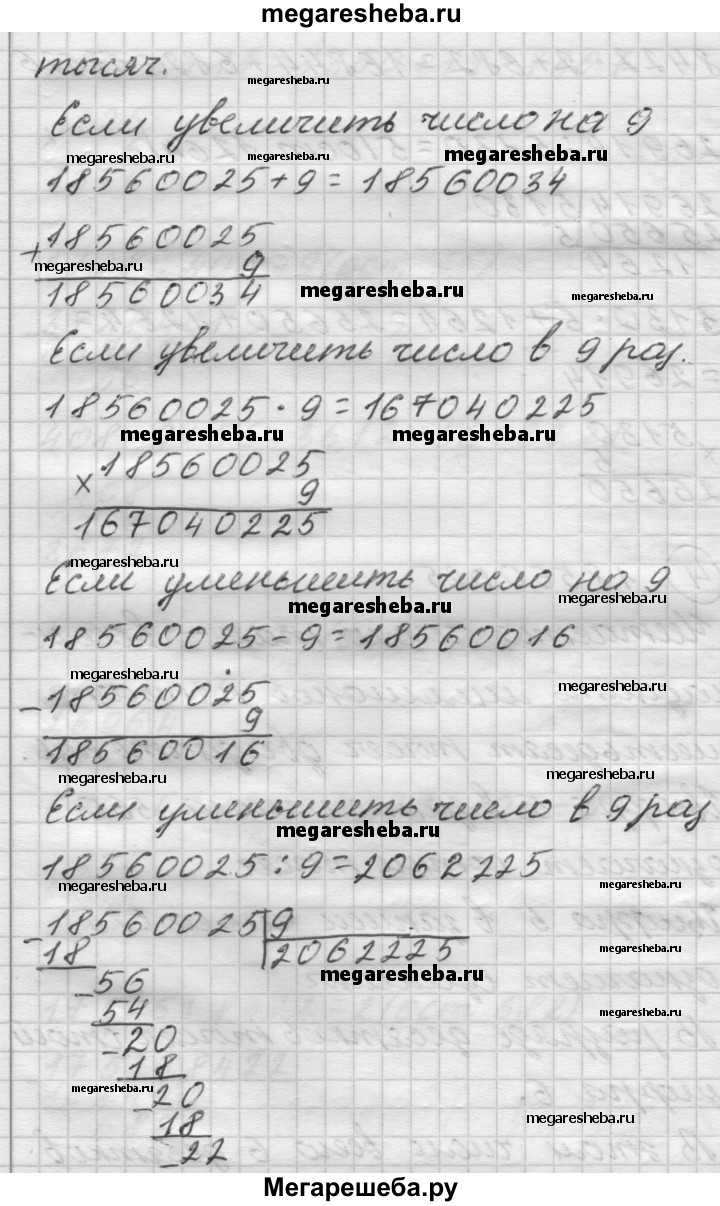 megaresheba.ru
тысяч.
megaresheba.ru
Если увеличить число на 9
megaresheba.ru megaresheba.ru megaresheba.ru
18560025+9=18560034
+18560025
megaresheba.ru 9
18560034
megaresheba.ru megaresheba.ru
Если увеличить число в 9 раз.
18560025·9=167040225
megaresheba.ru megaresheba.ru
×18560025
9
167040225
megaresheba.ru
Если уменьшить число на 9
megaresheba.ru megaresheba.ru
18560025-9=18560016
megaresheba.ru megaresheba.ru
-18560025
9
18560016
megaresheba.ru megaresheba.ru
Если уменьшить число в 9 раз
megaresheba.ru
18560025:9=2062225
megaresheba.ru megaresheba.ru
-18560025|9
18 2062225
megaresheba.ru megaresheba.ru
-56
54
-20
18
megaresheba.ru
-20
18
megaresheba.ru
-22
Мегарешеба.ру